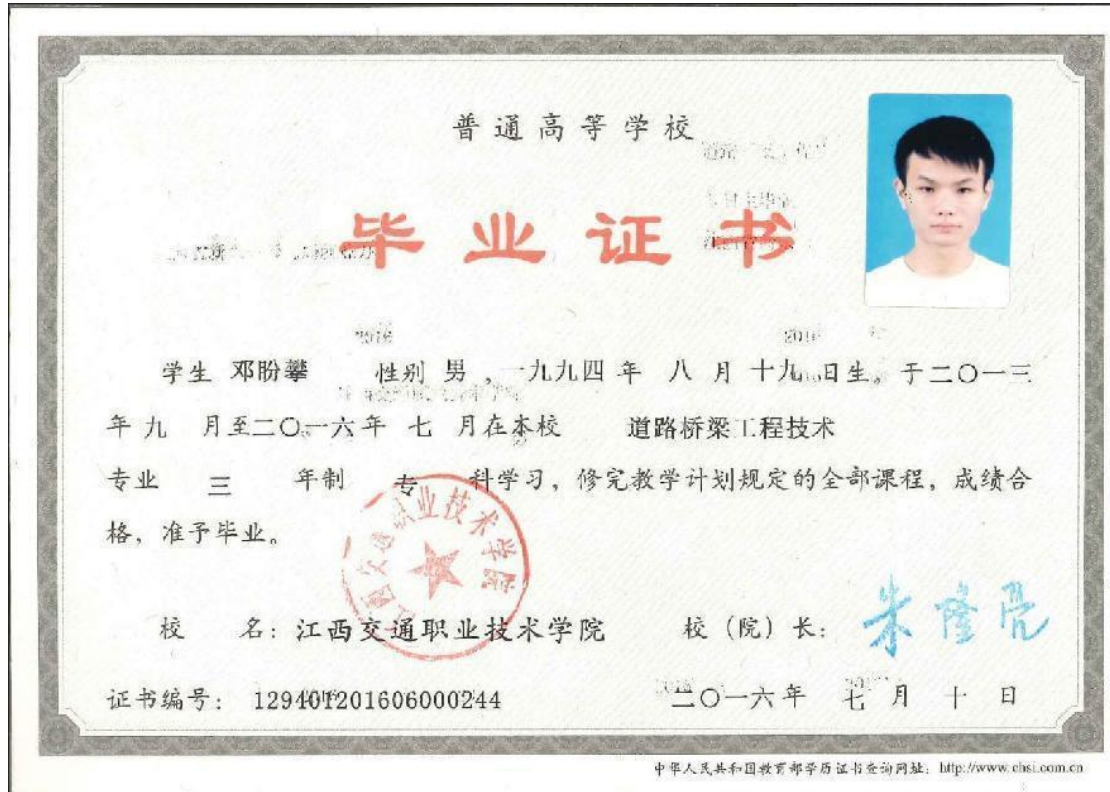 普通高等学校
毕业证书
学生 邓盼攀 性别 男 ,一九九四 年 八 月 十九 日生。于二〇一三
年 九 月至二〇一六年 七 月在本校 道路桥梁工程技术
专业 三 年制 专 科学习，修完教学计划规定的全部课程，成绩合
格，准予毕业。
江西交通职业技术学院
校 名：江西交通职业技术学院 校（院）长：朱隆亮
证书编号： 129401201606000244 二〇一六年 七 月 十 日
中华人民共和国教育部学历证书查询网址：http://www.chsi.com.cn